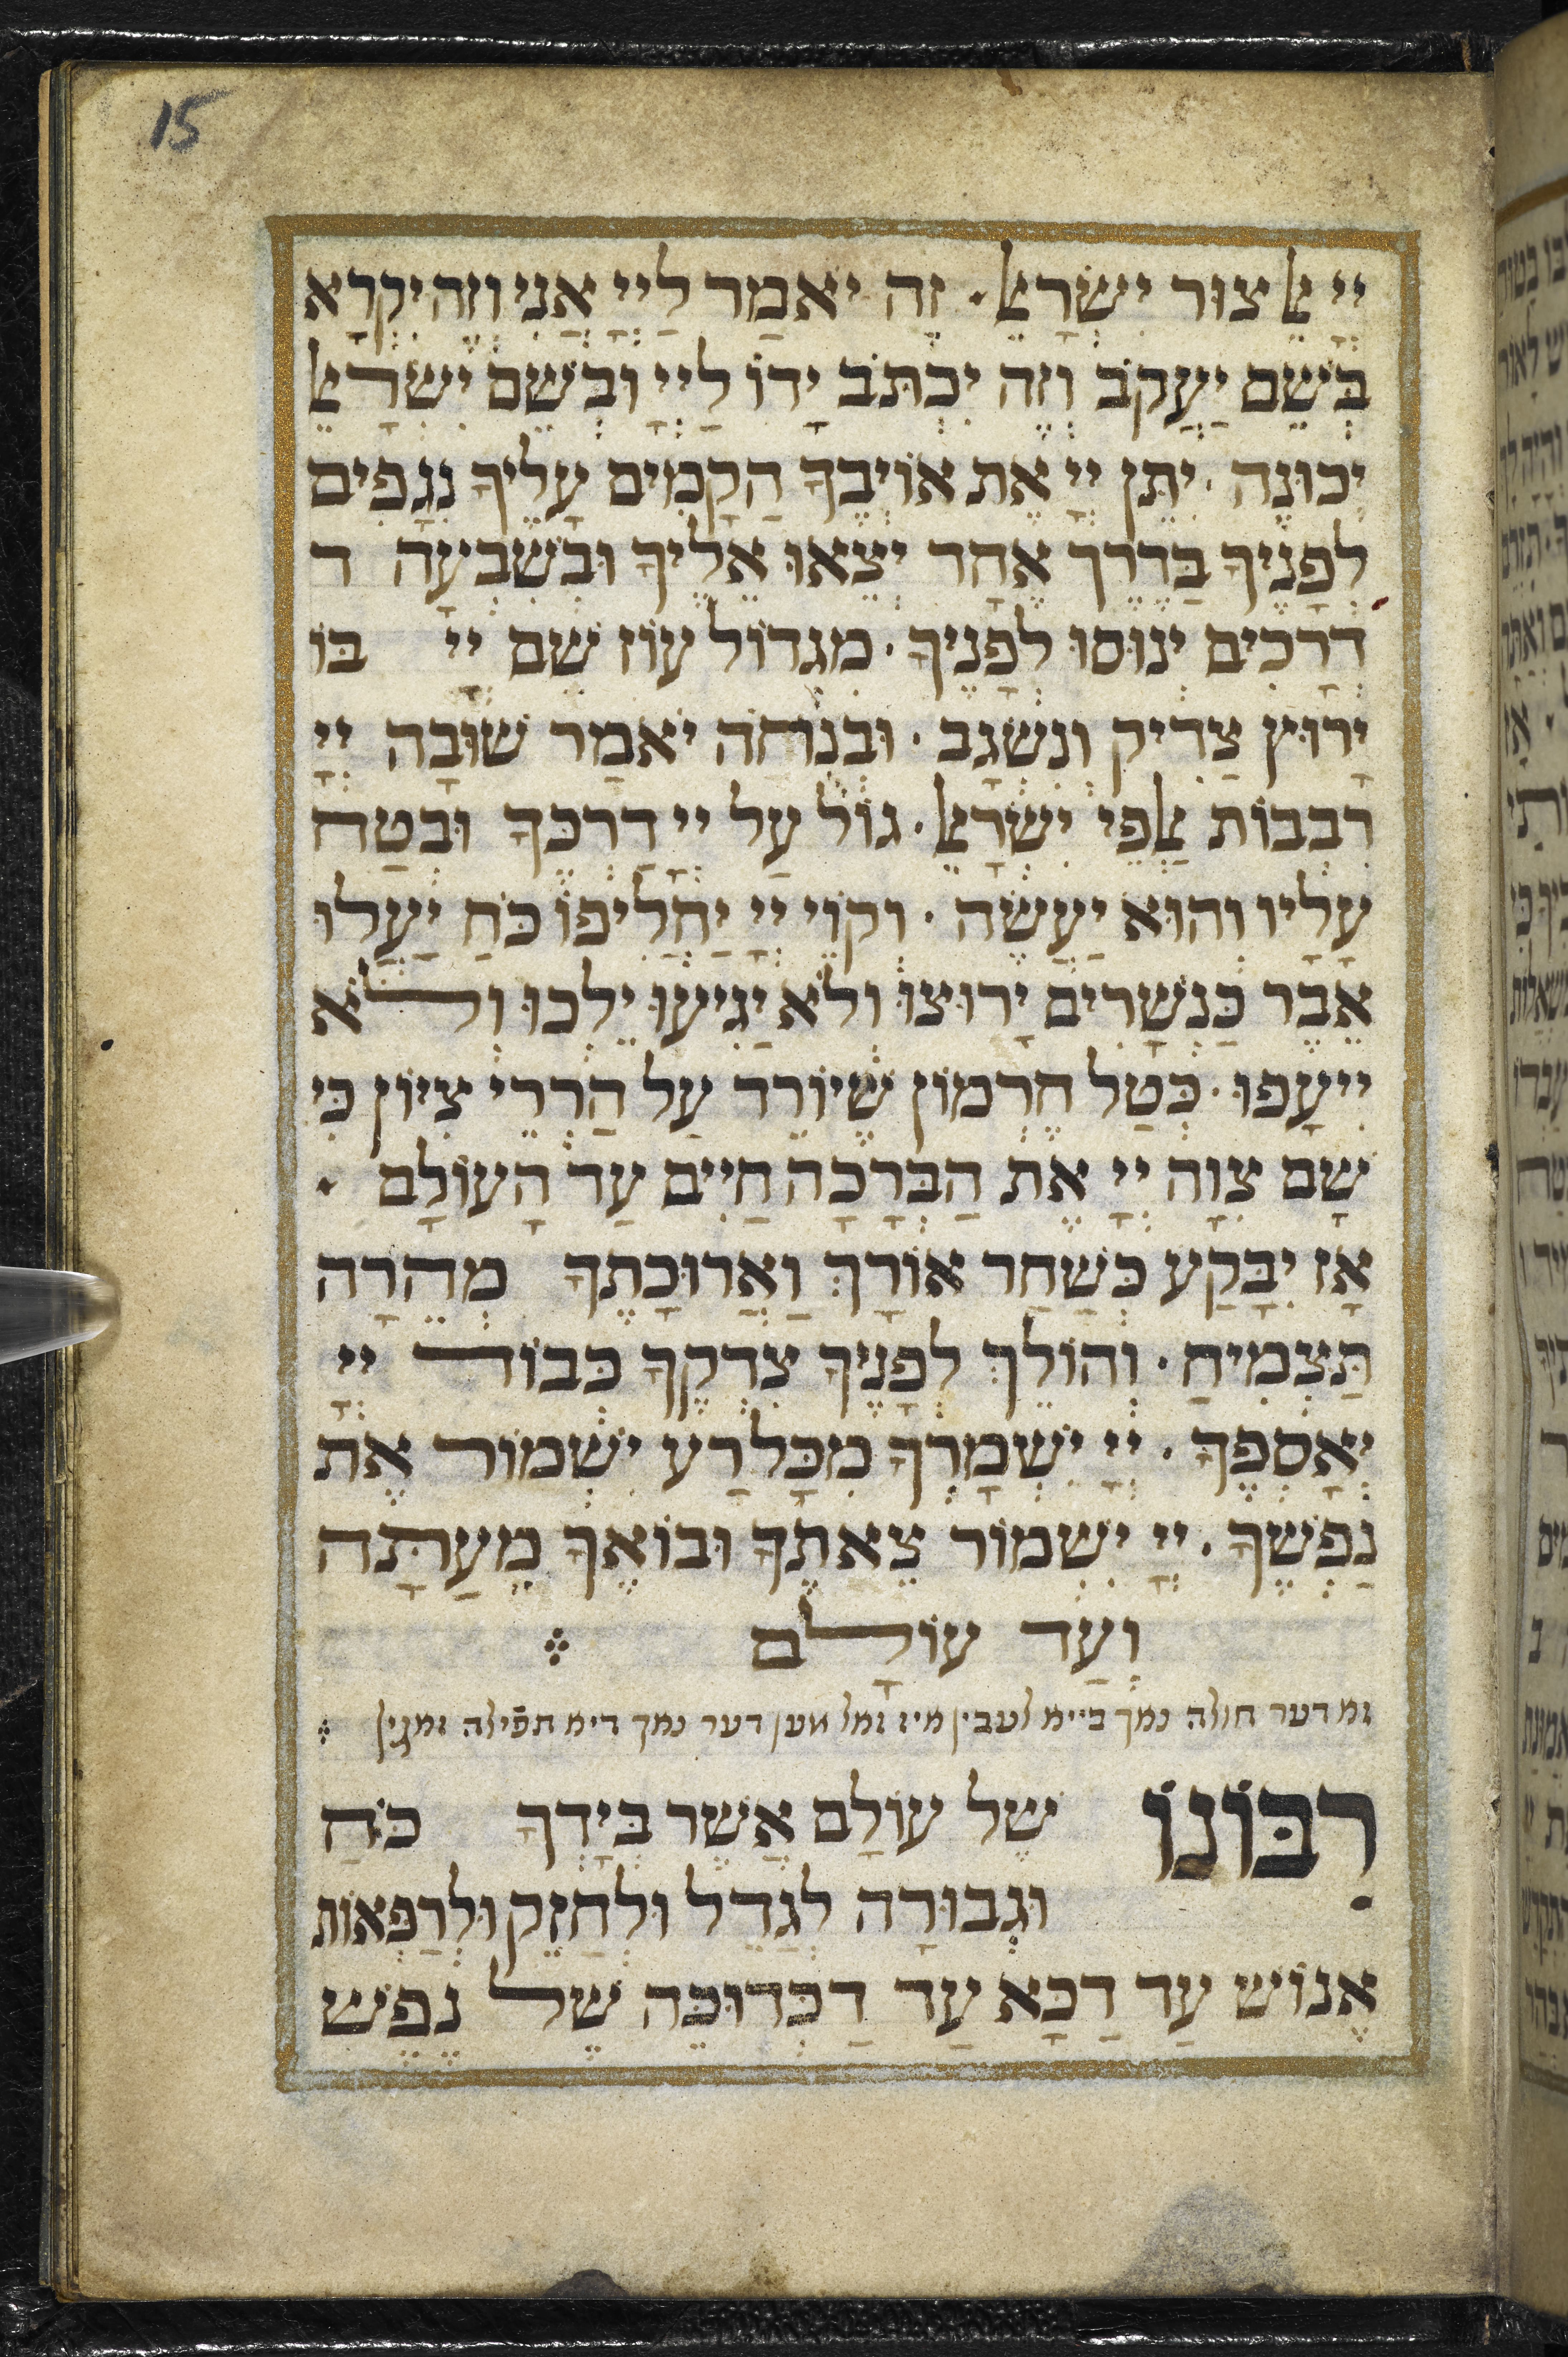 15
יְיָ אֵל צוּר יִשְׂרָאֵל · זֶה יֹאמַר לַיְיָ אֲנִי וְזֶה יִקְרָא
בְּשֵׁם יַעֲקֹב וְזֶה יִכְתֹּב יָדוֹ לַיְיָ וּבְשֵׁם יִשְׂרָאֵל
יְכוּנֶה · יִתֵּן יְיָ אֶת אוֹיְבֶךָ הַקָמִים עָלֶיךָ נִגָפִים
לְפָנֶיךָ בַּדֶרֶךְ אֶחָד יֵצְאוּ אֵלֶיךָ וּבְשִׁבְעָה ד
דְרָכִים יָנוּסוּ לְפָנֶיךָ · מִגְדוֹל עוֹז שֵׁם יְיָ בּוֹ
יָרוּץ צַדִיק וְנִשְׂגָב · וּבְנֻחֹה יֹאמַר שׁוּבָה יְיָ
רִבְבוֹת אַלְפֵי יִשְׂרָאֵל · גּוֹל עַל יְיָ דַרְכֶּךָ וּבְטַח
עָלָיו וְהוּא יַעֲשֶׂה · וְקוֹיֵ יְיָ יַחֲלִיפוּ כֹּחַ יַעֲלוּ
אֵבֶר כַּנְשָׁרִים יָרוּצוּ וְלֹא יַגִיעוּ יֵלְכוּ וְלֹא
יִיעָפוּ · כְּטַל חֶרְמוֹן שֶׁיוֹרֵד עַל הַרְרֵי צִיוֹן כִּי
שָׁם צִוָה יְיָ אֶת הַבְּרָכָה חַיִים עַד הָעוֹלָם ·
אָז יִבָּקַע כְּשַׁחַר אוֹרָךְ וַאֲרוּכָתֶךָ מְהֵרָה
תַּצְמִיחַ · וְהוֹלֵךְ לְפָנֶיךָ צִדְקֶךָ כְּבוֹד יְיָ
יְאָסְפֶךָ · יְיָ יִשְׁמָרְךָ מִכָּל רַע יִשְׁמוֹר אֶת
נַפְשֶׁךָ · יְיָ יִשְׁמוֹר צֵאתֶךָ וּבוֹאֶךָ מֵעַתָּה
וְעַד עוֹלָם
דער חולה נאך ביימ לעבין איז זאל מען דער נאך דיא תפילה זאגין
רִבּוֹנוֹ שֶׁל עוֹלָם אֲשֶׁר בְּיָדְךָ כֹּחַ
וּגְבוּרָה לְגַדֵל וּלְחַזֵק וּלְרַפְּאוֹת
אֶנוֹשׁ עַד דַכָּא עַד דַכְּדוּכָּהּ שֶׁל נֶפֶשׁ